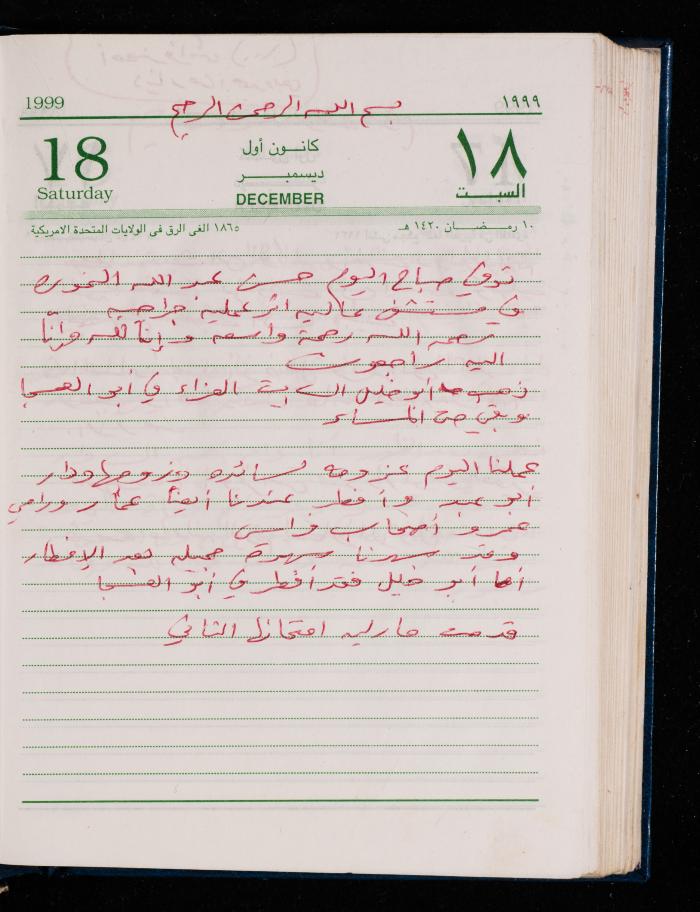 1999
بسم الله الرحمن الرحيم
١٩٩٩
18
Saturday
كانون أول
ديسمبر
DECEMBER
١٨
السبت
١٠ رمضان ١٤٢٠ هـ
١٨٦٥ الغى الرق فى الولايات المتحدة الامريكية
توفي صباح اليوم حسن عبد الله
في مستشفى عاليه اثر عملية جراحيه
رحمه الله رحمة واسعه وإنا لله وإنا
اليه راجعون
ذهب أبو خليل العزاء في أبو
وبقي حتى المساء
عملنا اليوم عزومه لسائده وزوجها ودار
أبو عبد وأفطر عندنا أيضاً عمار ورامي
عمرو أصحاب فراس
وقد سهرنا سهرة جميله بعد الإفطار
أما أبو خليل فقد أفطر في أبو
قدمت ماريه امتحانها الثاني